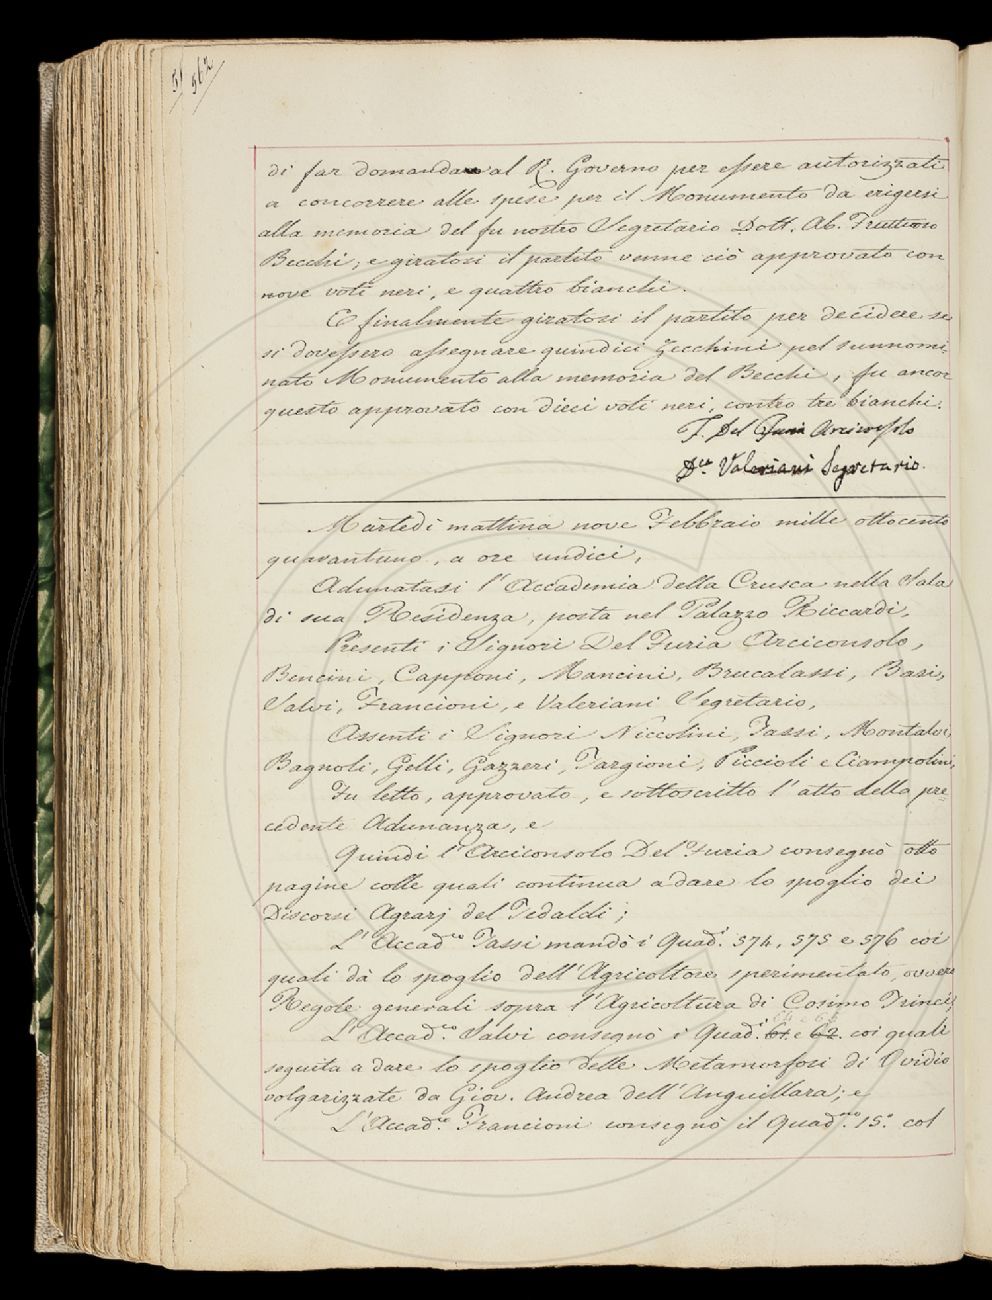 51
562
di far domanda al R. Governo per essere autorizzati
a concorrere alle spese per il Monumento da erigersi
alla memoria del fu nostro Segretario Dott. Ab. Fruttuoso
Becchi; e giratosi il partito venne ciò approvato con
nove voti neri, e quattro bianchi.
E finalmente giratosi il partito per decidere se
si dovessero assegnare quindici Zecchini pel sunnomi-
nato Monumento alla memoria del Becchi, fu ancor
questo approvato con dieci voti neri, contro tre bianchi.
F. Del Furia Arciconsolo
D.re Valeriani Segretario.
Martedì mattina nove Febbraio mille ottocento
quarantuno, a ore undici,
Adunatasi l'Accademia della Crusca nella Sala
di sua Residenza, posta nel Palazzo Riccardi,
Presenti i Signori Del Furia Arciconsolo,
Bencini, Capponi, Mancini, Brucalassi, Basi,
Salvi, Francioni, e Valeriani Segretario,
Assenti i Signori Niccolini, Tassi, Montalvi,
Bagnoli, Gelli, Gazzeri, Targioni, Piccioli e Ciampolini,
Fu letto, approvato, e sottoscritto l'atto della pre-
cedente Adunanza, e
Quindi l'Arciconsolo Del Furia consegnò otto
pagine colle quali continua a dare lo spoglio dei
Discorsi Agrarj del Tedaldi;
L'Accad.co Tassi mandò i Quad.i 574, 575 e 576 coi
quali dà lo spoglio dell'Agricoltore sperimentato, ovvero
Regole generali sopra l'Agricoltura di Cosimo Trinci;
L'Accad.co Salvi consegnò i Quad.i 61 e 62 coi quali
seguita a dare lo spoglio delle Metamorfosi di Ovidio
volgarizzate da Giov. Andrea dell'Anguillara; e
L'Accad.co Francioni consegnò il Quad.no 15.° col